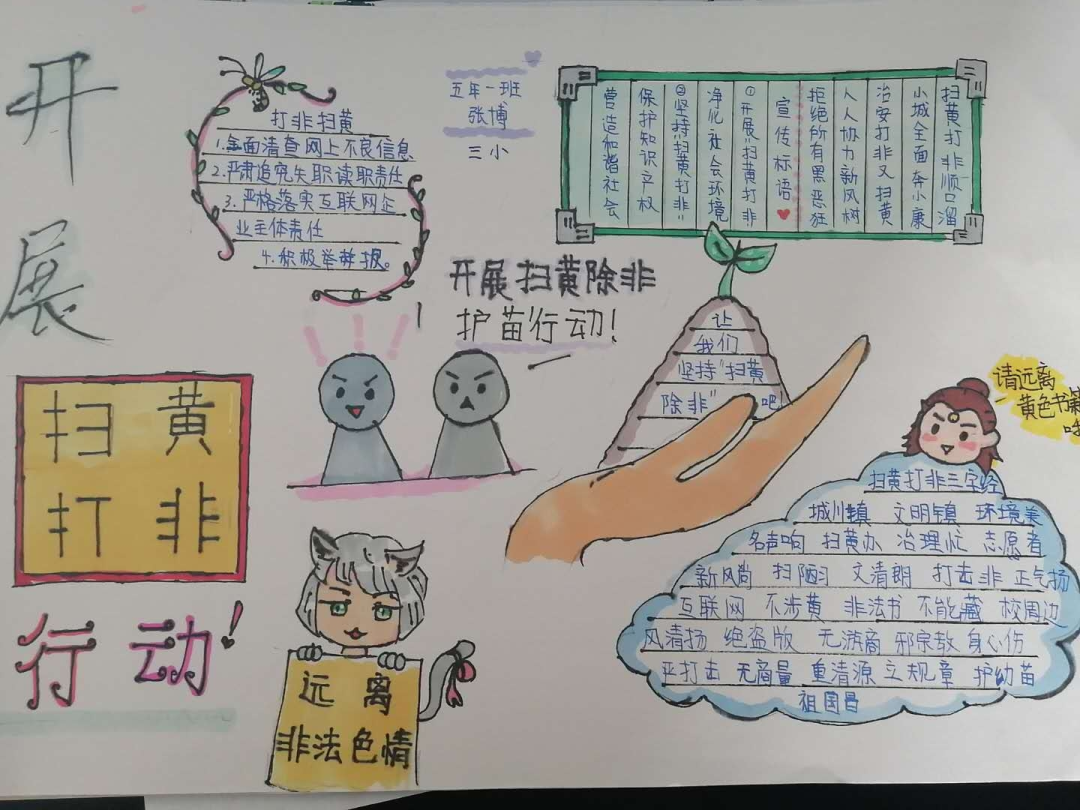 开展
扫黄
打非
行动!
打非扫黄
1.全面清查网上不良信息
2.严肃追究失职读职责任
3.严格落实互联网企
业主体责任
4.积极举报。
五年一班
张博
三小
扫黄打非顺口溜
小城全面奔小康
治安打非又扫黄
人人协力新风树
拒绝所有黑恶狂
宣传标语
①开展“扫黄打非
净化社会环境
②坚持“扫黄打非”
保护知识产权
营造和谐社会
开展扫黄除非
护苗行动!
让
我们
坚持“扫黄
除非”吧
请远离
黄色书籍
哦
扫黄打非三字经
城川镇 文明镇 环境美
名声响 扫黄办 治理忙 志愿者
新风尚 扫陋习 文清朗 打击非 正气扬
互联网 不涉黄 非法书 不能藏 校周边
风清扬 绝盗版 无游商 邪宗教 身心伤
严打击 无商量 重清源 立规章 护幼苗
祖国昌
远离
非法色情